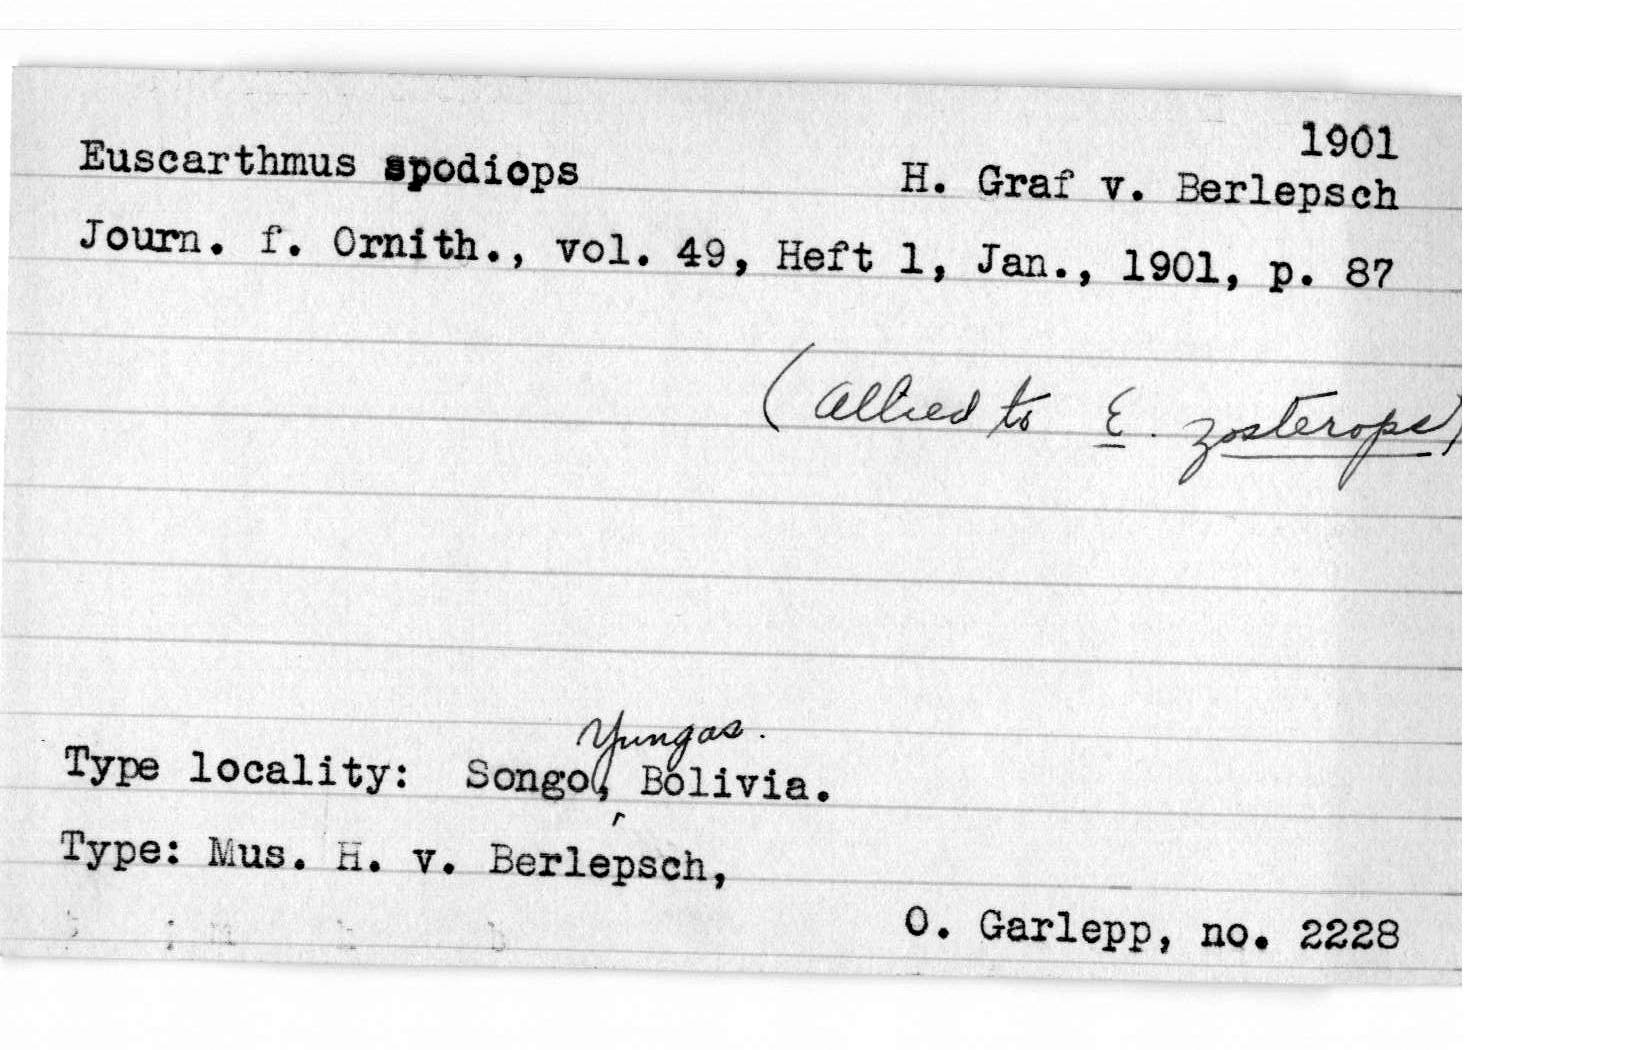 1901
Euscarthmus spodiops H. Graf v. Berlepsch
Journ. f. Ornith., vol. 49, Heft 1, Jan., 1901, p. 87
(allied to E. zosterops)
Yungas.
Type locality: Songo, Bolivia.
Type: Mus. H. v. Berlepsch,
O. Garlepp, no. 2228